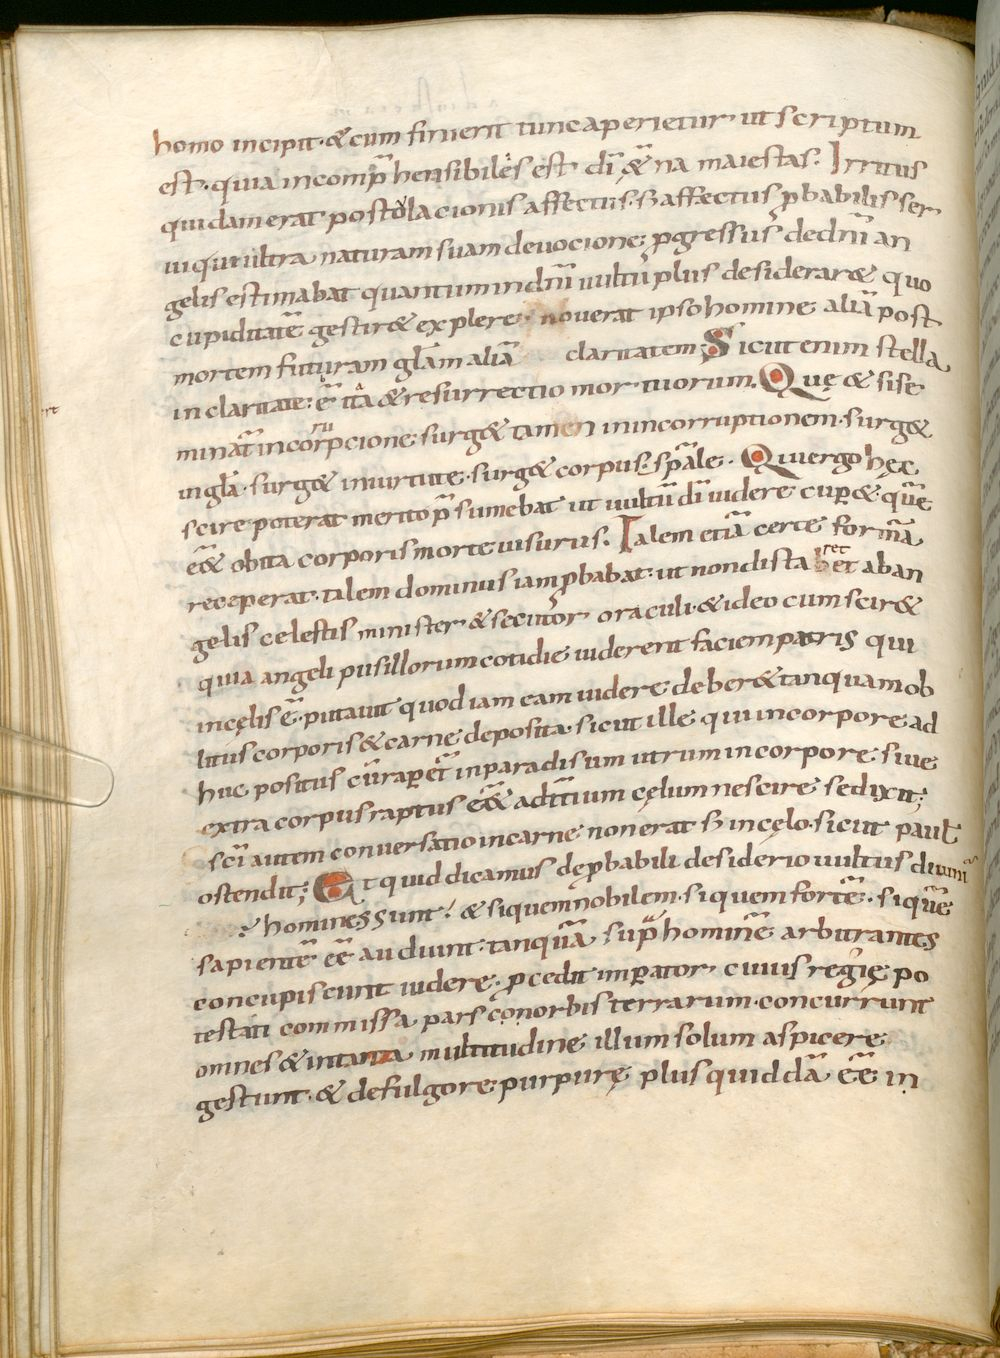 homo incipit · & cum finierit tunc aperietur ut scriptum
est · quia incomp̄hensibiles est dī &̄na maiestas. Irritus
quidam erat postolacionis affectus · s; affectus p̱babilis ser
ui qui ultra naturam suam deuocione p̱gressus de dn̄i an
gelis estimabat quantum in dn̄i uultū plus desiderar& quo
cupiditatē gestir& explere · nouerat ipso homine aliā post
mortem futuram glām aliā claritatem; Sicut enim stella
in claritate: ē itā & resurrectio mortuorum. Quę & si se
minat̄ in corrupcione · surg& tamen in incorruptionem · surg&
in glā · surg& in uirtute · surg& corpus sp̄ale · Qui ergo hęc
scire poterat merito p̄sumebat ut uultū dī uidere cup̱& · quē
e&̄ obita corporis morte uisurus. Talem etiā certe formā
receperat · talem dominus iam p̱babat · ut non distaret ab an
gelis celestis minister & secutor oraculi · & ideo cum scir&
quia angeli pusillorum cotidie uiderent faciem patris qui
in cęlis ē · putauit quod iam eam uidere deber& tanquam ob
litus corporis & carne deposita · sicut ille qui in corpore ad
huc positus cū rap̱et̄ in paradisum utrum in corpore siue
extra corpus raptus e&̄ ad t̄tium cęlum nescire se dixit;
sc̄i autem conuersatio in carne non erat s; in cęlo · sicut paul'
ostendit; Et quid dicamus de p̱babili desiderio uultus diuini
homines sunt · & si quem nobilem · si quem fortē · si quē
sapientē eē audiunt · tanquā sup̱ hominē arbitrantes
concupiscunt uidere · p̱cedit imp̱ator cuius regię po
testati commissa pars con orbis terrarum · concurrunt
omnes & in tanta multitudine illum solum aspicere
gestunt · & de fulgore purpurę plus quid dā eē in